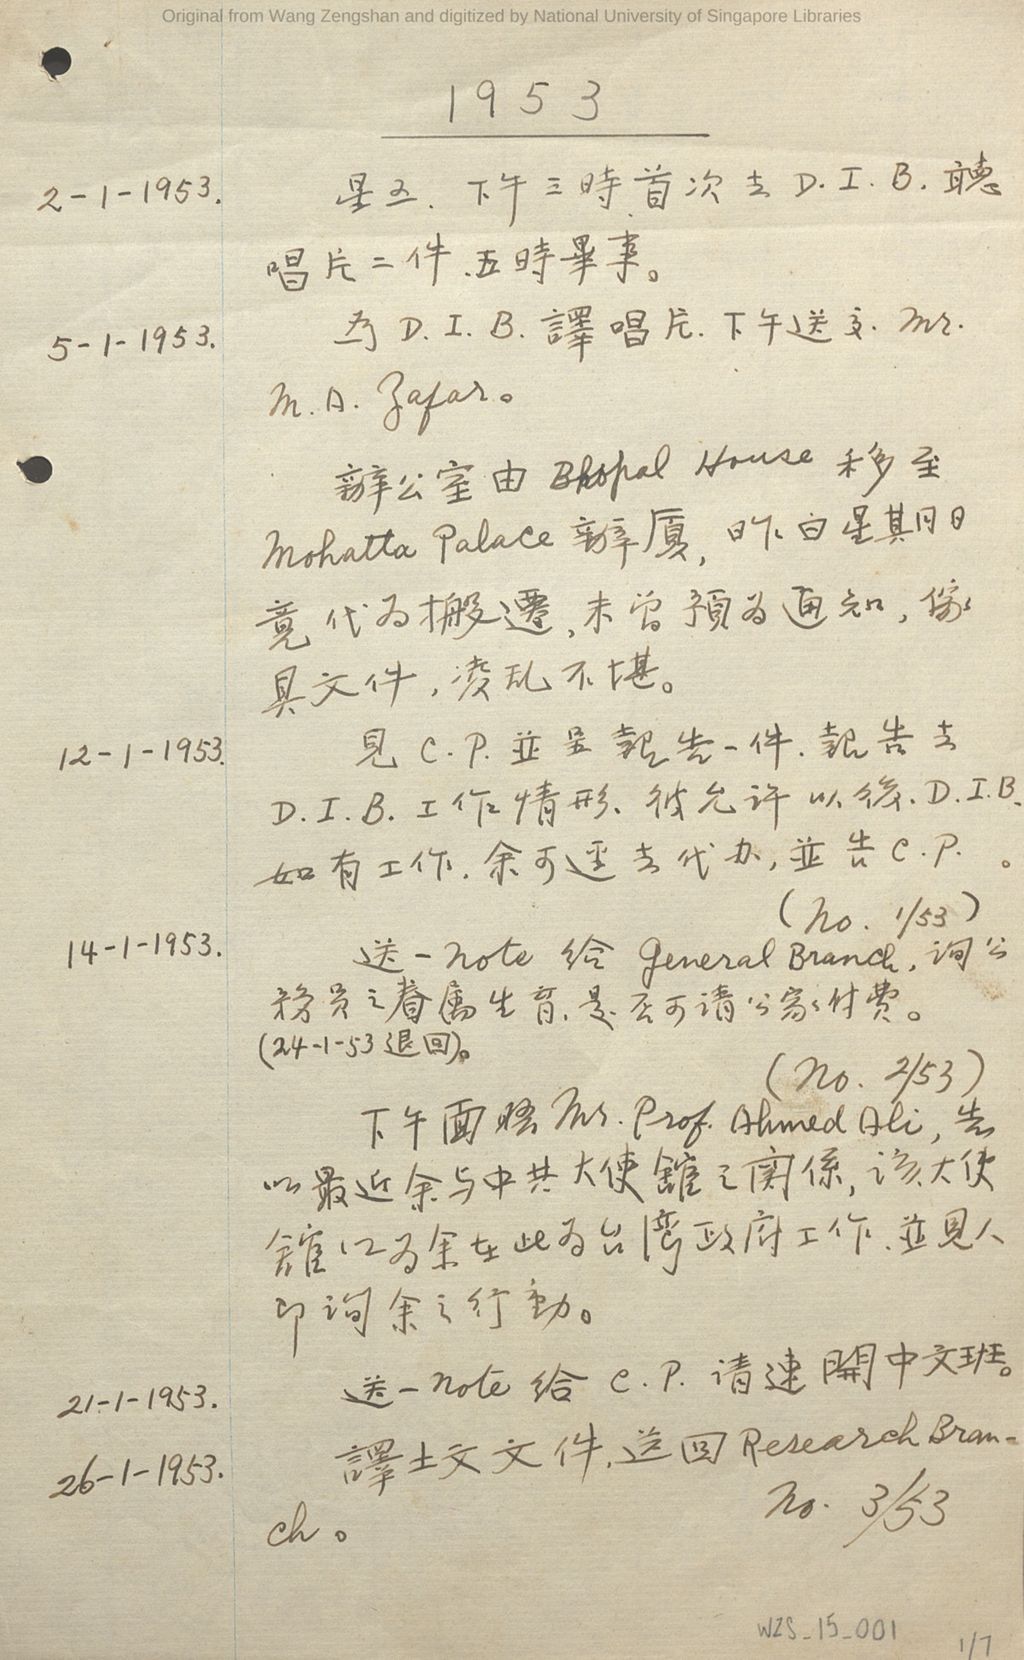 Original from Wang Zengshan and digitized by National University of Singapore Libraries
1953
2-1-1953. 星五. 下午三時首次去 D.I.B. 聽
唱片二件.五時畢事。
5-1-1953. 為 D.I.B. 譯唱片.下午送交. Mr.
M.A. Zafar。
辦公室由 Bhopal House 移至
Mohatta Palace 辦厦, 昨白星期日
竟代为搬遷,未曾預为通知,傢
具文件,凌乱不堪。
12-1-1953. 見 C.P. 並呈報告一件.報告去
D.I.B. 工作情形、彼允许以後.D.I.B.
如有工作.余可逕去代办,並告 C.P. 。
(No. 1/53)
14-1-1953. 送一 note 给 General Branch, 询公
務員之眷属生育.是否可请公家付費。
(24-1-53 退回)。
(No. 2/53)
下午面晤 Mr. Prof. Ahmed Ali, 告
以最近余与中共大使館之関係,该大使
館以为余在此为台灣政府工作.並見人
即询余之行動。
21-1-1953. 送一 note 给 C.P. 请速開中文班。
26-1-1953. 譯土文文件,送回 Research Bran-
No. 3/53
ch。
WZS_15_001
1/7